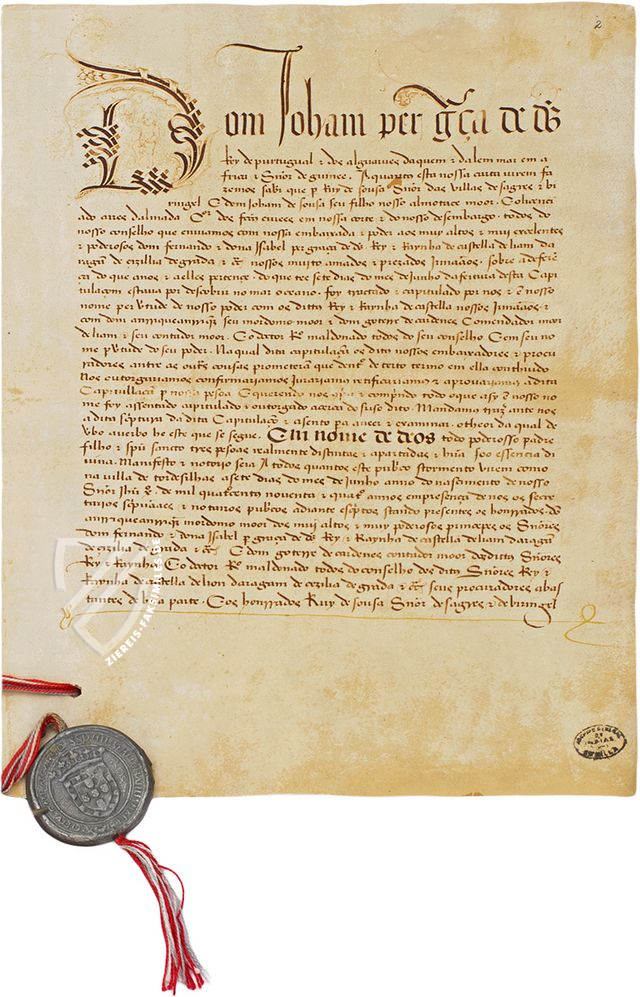 2
Dom Joham per gça de ds
Rey de purtugual & dos alguarves daquem & dalem mar em a
frica & Sñor de guinee. A quantos esta nossa carta virem fa
zemos saber que per Ruy de sousa Sñor das villas de sagres & bi
ringel E dom Joham de sousa seu filho nosso almotace moor. E o licenci
ado aires dalmada em nossa corte & do nosso desembargo. todos do
nosso conselho que enviamos com nossa embaixada & poder aos muy altos & muy excelentes
& poderosos dom fernando & dona Isabel per graça de ds Rey & Raynha de castella de liam dara
gam de cizilia de grada & nossos muito amados & prezados Irmãaos. sobre a deferẽ
ça do que a nos & a elles pertençe. do que tee sete dias do mes de Junho da feitura desta Capi
tulaçam estava por descobrir no mar oceano. foy trautado & capitulado por nos & em nosso
nome per vertude de nosso poder com os ditos Rey & Raynha de castella nossos Irmãaos &
com dom anrrique anrriquez seu mordomo moor & dom goterre de cardenes Comendador moor
de liam & seu contador moor. E o dotor Ro maldonado todos do seu conselho E em seu no
me per vertude do seu poder. Na qual dita capitulaçam os ditos nossos embaixadores & procu
radores antre as outras cousas prometeram que dentro de certo termo em ella contheudo
Nos outorgariamos confirmariamos Jurariamos retificariamos & aprovariamos a dita
Capitullaçam per nossa pesoa E querendo nos comprir & comprindo todo o que asy em nosso no
me foy assentado capitulado & outorgado acerca do suso dito. Mandamos trazer ante nos
a dita escriptura da dita Capitulaçam & asento pera a veer & examinar. o theor da qual de
vbo a verbo he este que se segue. Em nome de deos todo poderoso padre
filho & spu sancto tres pesoas realmente distintas & apartadas & hũa soo essencia di
vina. Manifesto & notorio seja A todos quantos este publico stormento virem como
na villa de tordesilhas a sete dias do mes de Junho anno do nascimento de nosso
Sñor Ihu xo de mil & quatrocentos noventa & quatro annos em presença de nos os secre
tarios scprivaaes & notarios publicos adiante escriptos stando presentes os honrrados dom
anrrique anrriquez mordomo moor dos mui altos & muy poderosos principes os Sñores
dom fernando & dona Isabel per graça de ds Rey & Raynha de castella de liam daragam
de cizilia de grada & E dom goterre de cardenes contador moor dos ditos Sñores
Rey & Raynha. E o dotor Ro maldonado todos do conselho dos ditos Sñores Rey &
Raynha de castella de liom daragam de cezilia de grada & seus procuradores abas
tantes de hũa parte. E os honrrados Ruy de sousa Sñor de sagres & de biringel
ZIEREIS-FAKSIMILE.DE
ARCHIVO GENERAL
DE
INDIAS
SEVILLA